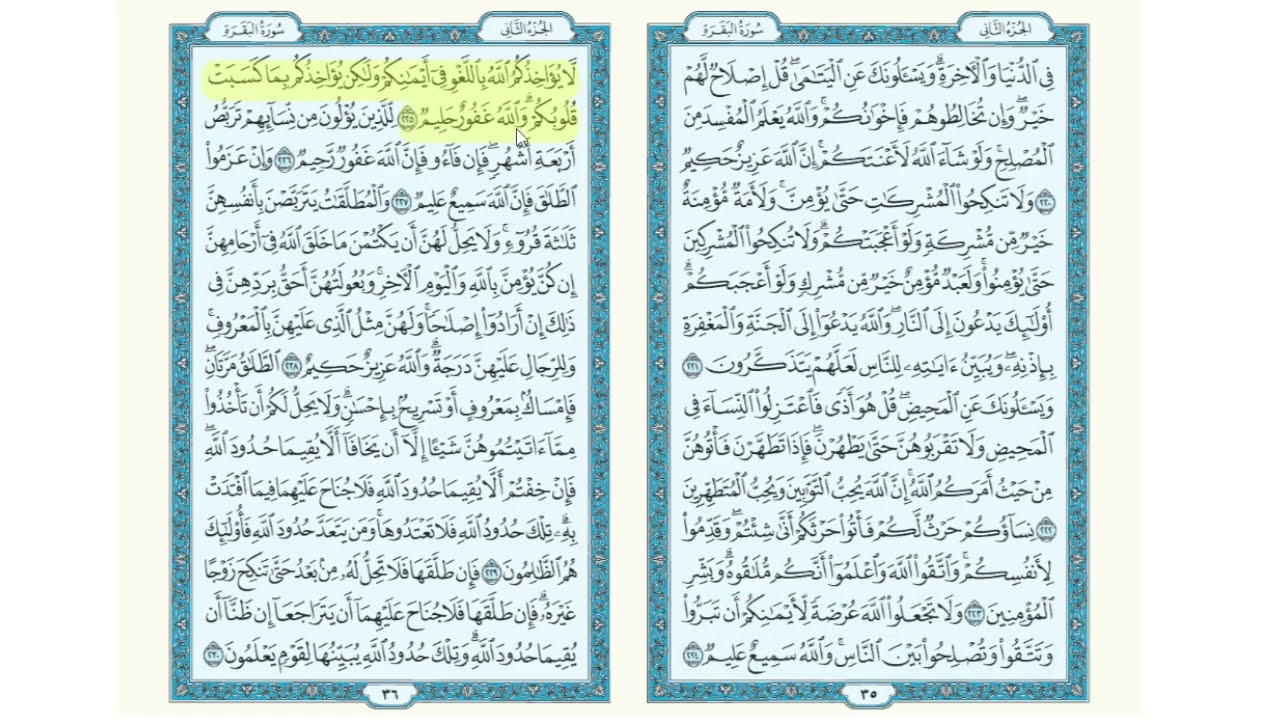 الجزء الثاني
سورة البقرة
فِي ٱلدُّنْيَا وَٱلْأَخِرَةِ ۗ وَيَسْـَٔلُونَكَ عَنِ ٱلْيَتَـٰمَىٰ ۖ قُلْ إِصْلَاحٌ لَّهُمْ
خَيْرٌ ۖ وَإِن تُخَالِطُوهُمْ فَإِخْوَٰنُكُمْ ۚ وَٱللَّهُ يَعْلَمُ ٱلْمُفْسِدَ مِنَ
ٱلْمُصْلِحِ ۚ وَلَوْ شَآءَ ٱللَّهُ لَأَعْنَتَكُمْ ۚ إِنَّ ٱللَّهَ عَزِيزٌ حَكِيمٌ
٢٢٠ وَلَا تَنكِحُوا۟ ٱلْمُشْرِكَـٰتِ حَتَّىٰ يُؤْمِنَّ ۚ وَلَأَمَةٌ مُّؤْمِنَةٌ
خَيْرٌ مِّن مُّشْرِكَةٍ وَلَوْ أَعْجَبَتْكُمْ ۗ وَلَا تُنكِحُوا۟ ٱلْمُشْرِكِينَ
حَتَّىٰ يُؤْمِنُوا۟ ۚ وَلَعَبْدٌ مُّؤْمِنٌ خَيْرٌ مِّن مُّشْرِكٍ وَلَوْ أَعْجَبَكُمْ ۗ
أُو۟لَـٰٓئِكَ يَدْعُونَ إِلَى ٱلنَّارِ ۖ وَٱللَّهُ يَدْعُوٓا۟ إِلَى ٱلْجَنَّةِ وَٱلْمَغْفِرَةِ
بِإِذْنِهِۦ ۖ وَيُبَيِّنُ ءَايَـٰتِهِۦ لِلنَّاسِ لَعَلَّهُمْ يَتَذَكَّرُونَ ٢٢١
وَيَسْـَٔلُونَكَ عَنِ ٱلْمَحِيضِ ۖ قُلْ هُوَ أَذًى فَٱعْتَزِلُوا۟ ٱلنِّسَآءَ فِي
ٱلْمَحِيضِ وَلَا تَقْرَبُوهُنَّ حَتَّىٰ يَطْهُرْنَ ۖ فَإِذَا تَطَهَّرْنَ فَأْتُوهُنَّ
مِنْ حَيْثُ أَمَرَكُمُ ٱللَّهُ ۚ إِنَّ ٱللَّهَ يُحِبُّ ٱلتَّوَّٰبِينَ وَيُحِبُّ ٱلْمُتَطَهِّرِينَ
٢٢٢ نِسَآؤُكُمْ حَرْثٌ لَّكُمْ فَأْتُوا۟ حَرْثَكُمْ أَنَّىٰ شِئْتُمْ ۖ وَقَدِّمُوا۟
لِأَنفُسِكُمْ ۚ وَٱتَّقُوا۟ ٱللَّهَ وَٱعْلَمُوٓا۟ أَنَّكُم مُّلَـٰقُوهُ ۗ وَبَشِّرِ
ٱلْمُؤْمِنِينَ ٢٢٣ وَلَا تَجْعَلُوا۟ ٱللَّهَ عُرْضَةً لِّأَيْمَـٰنِكُمْ أَن تَبَرُّوا۟
وَتَتَّقُوا۟ وَتُصْلِحُوا۟ بَيْنَ ٱلنَّاسِ ۗ وَٱللَّهُ سَمِيعٌ عَلِيمٌ ٢٢٤
٣٥
الجزء الثاني
سورة البقرة
لَّا يُؤَاخِذُكُمُ ٱللَّهُ بِٱللَّغْوِ فِىٓ أَيْمَـٰنِكُمْ وَلَـٰكِن يُؤَاخِذُكُم بِمَا كَسَبَتْ
قُلُوبُكُمْ ۗ وَٱللَّهُ غَفُورٌ حَلِيمٌ ٢٢٥ لِّلَّذِينَ يُؤْلُونَ مِن نِّسَآئِهِمْ تَرَبُّصُ
أَرْبَعَةِ أَشْهُرٍ ۖ فَإِن فَآءُو فَإِنَّ ٱللَّهَ غَفُورٌ رَّحِيمٌ ٢٢٦ وَإِنْ عَزَمُوا۟
ٱلطَّلَـٰقَ فَإِنَّ ٱللَّهَ سَمِيعٌ عَلِيمٌ ٢٢٧ وَٱلْمُطَلَّقَـٰتُ يَتَرَبَّصْنَ بِأَنفُسِهِنَّ
ثَلَـٰثَةَ قُرُوٓءٍ ۚ وَلَا يَحِلُّ لَهُنَّ أَن يَكْتُمْنَ مَا خَلَقَ ٱللَّهُ فِىٓ أَرْحَامِهِنَّ
إِن كُنَّ يُؤْمِنَّ بِٱللَّهِ وَٱلْيَوْمِ ٱلْأَخِرِ ۚ وَبُعُولَتُهُنَّ أَحَقُّ بِرَدِّهِنَّ فِى
ذَٰلِكَ إِنْ أَرَادُوٓا۟ إِصْلَـٰحًا ۚ وَلَهُنَّ مِثْلُ ٱلَّذِى عَلَيْهِنَّ بِٱلْمَعْرُوفِ ۚ
وَلِلرِّجَالِ عَلَيْهِنَّ دَرَجَةٌ ۗ وَٱللَّهُ عَزِيزٌ حَكِيمٌ ٢٢٨ ٱلطَّلَـٰقُ مَرَّتَانِ ۖ
فَإِمْسَاكٌۢ بِمَعْرُوفٍ أَوْ تَسْرِيحٌۢ بِإِحْسَـٰنٍ ۗ وَلَا يَحِلُّ لَكُمْ أَن تَأْخُذُوا۟
مِمَّآ ءَاتَيْتُمُوهُنَّ شَيْـًٔا إِلَّآ أَن يَخَافَآ أَلَّا يُقِيمَا حُدُودَ ٱللَّهِ ۖ
فَإِنْ خِفْتُمْ أَلَّا يُقِيمَا حُدُودَ ٱللَّهِ فَلَا جُنَاحَ عَلَيْهِمَا فِيمَا ٱفْتَدَتْ
بِهِۦ ۗ تِلْكَ حُدُودُ ٱللَّهِ فَلَا تَعْتَدُوهَا ۚ وَمَن يَتَعَدَّ حُدُودَ ٱللَّهِ فَأُو۟لَـٰٓئِكَ
هُمُ ٱلظَّـٰلِمُونَ ٢٢٩ فَإِن طَلَّقَهَا فَلَا تَحِلُّ لَهُۥ مِنۢ بَعْدُ حَتَّىٰ تَنكِحَ زَوْجًا
غَيْرَهُۥ ۗ فَإِن طَلَّقَهَا فَلَا جُنَاحَ عَلَيْهِمَآ أَن يَتَرَاجَعَآ إِن ظَنَّآ أَن
يُقِيمَا حُدُودَ ٱللَّهِ ۗ وَتِلْكَ حُدُودُ ٱللَّهِ يُبَيِّنُهَا لِقَوْمٍ يَعْلَمُونَ ٢٣٠
٣٦